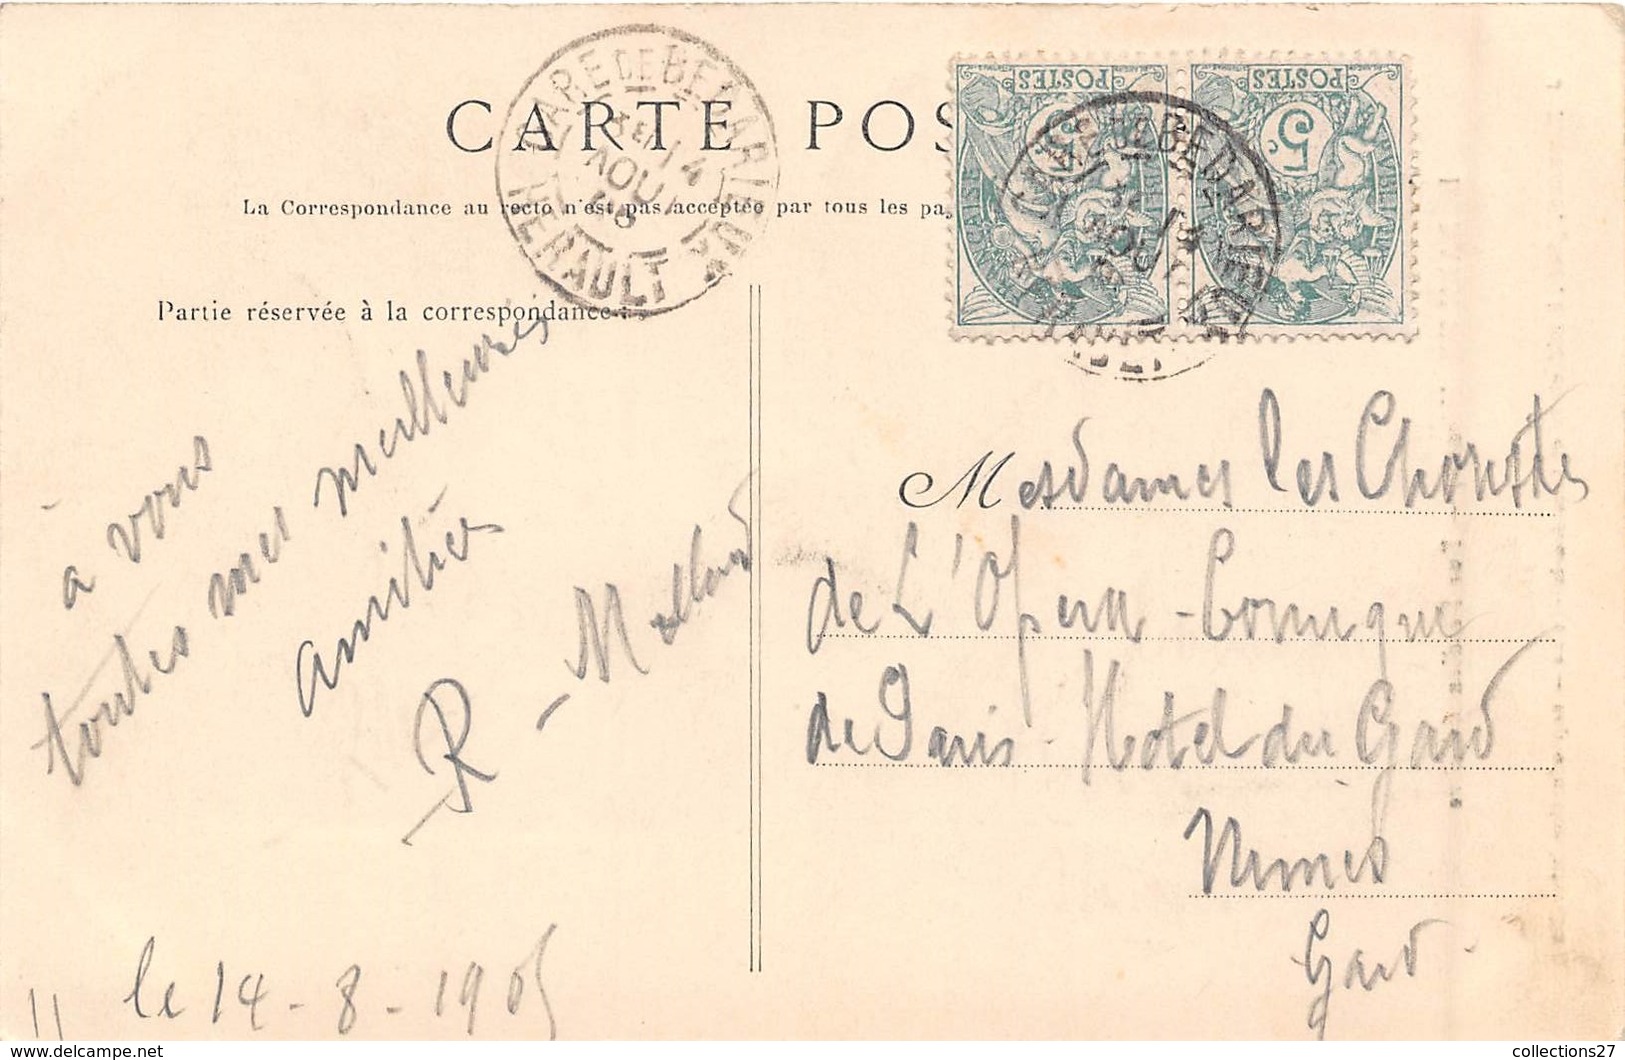 CARTE POS
La Correspondance au recto n'est pas acceptée par tous les pa
Partie réservée à la correspondance
GARE DE BEDARIEUX
14
AOUT
05
HERAULT
POSTES
POSTES
5c
5c
GARE DE BEDARIEUX
AOUT
HERAULT
à vous
toutes mes meilleures
amitiés
R
le 14-8-1905
Mesdames les Choristes
de L'Opera-Comique
de Paris-Hotel du Gard
Nimes
Gard.
collections27